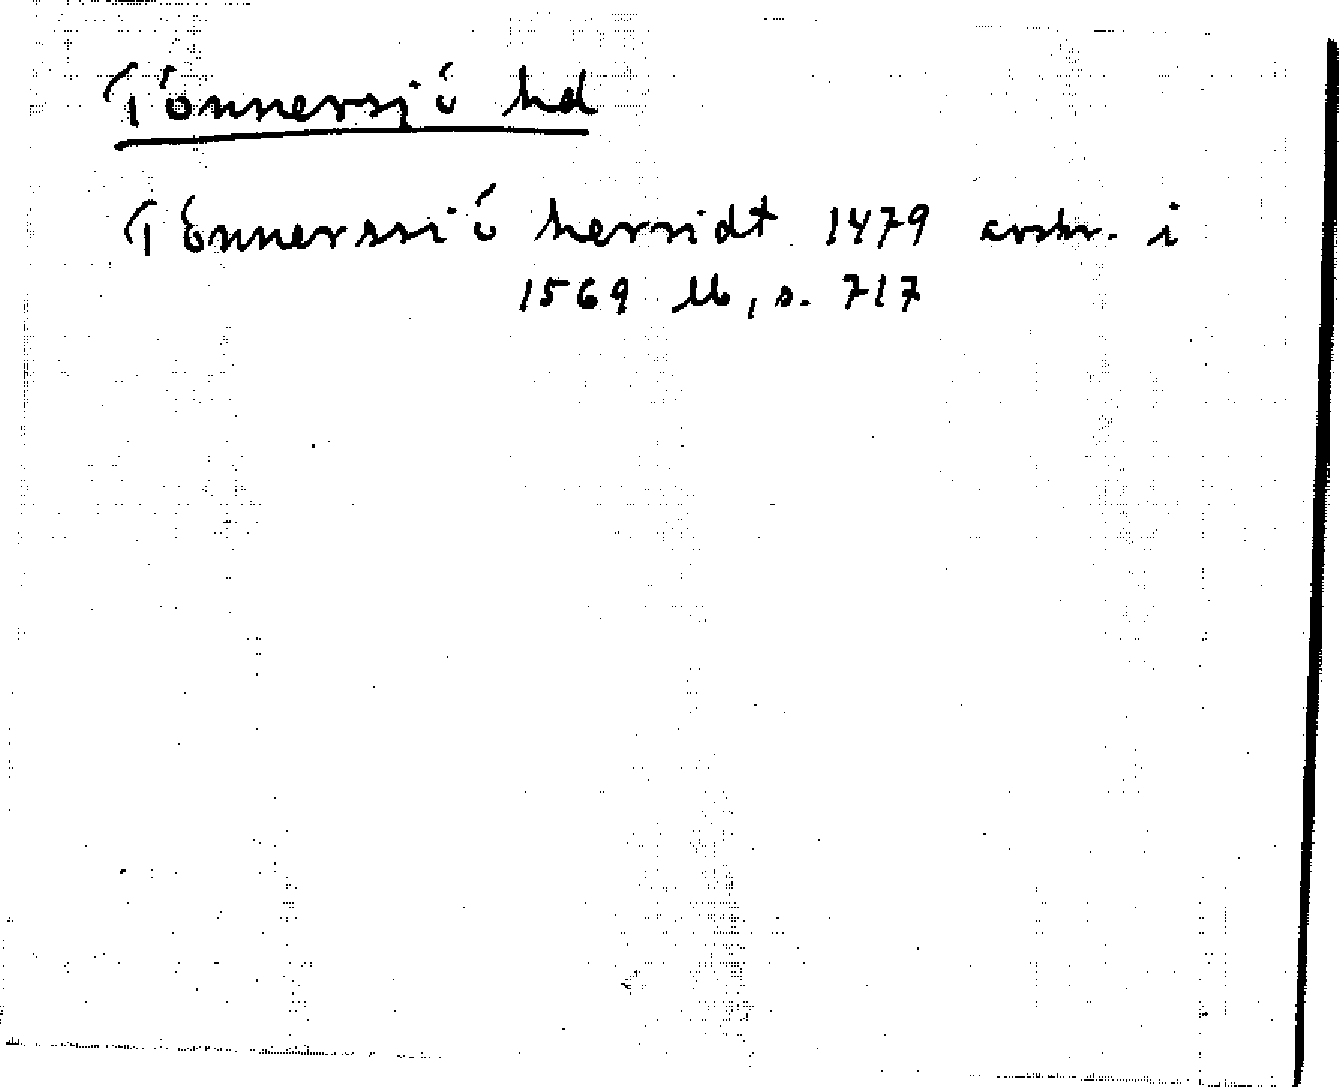 Tönnersjö hd
Tönnerssiö herridt 1479 avskr. i
1569 lb, s. 717